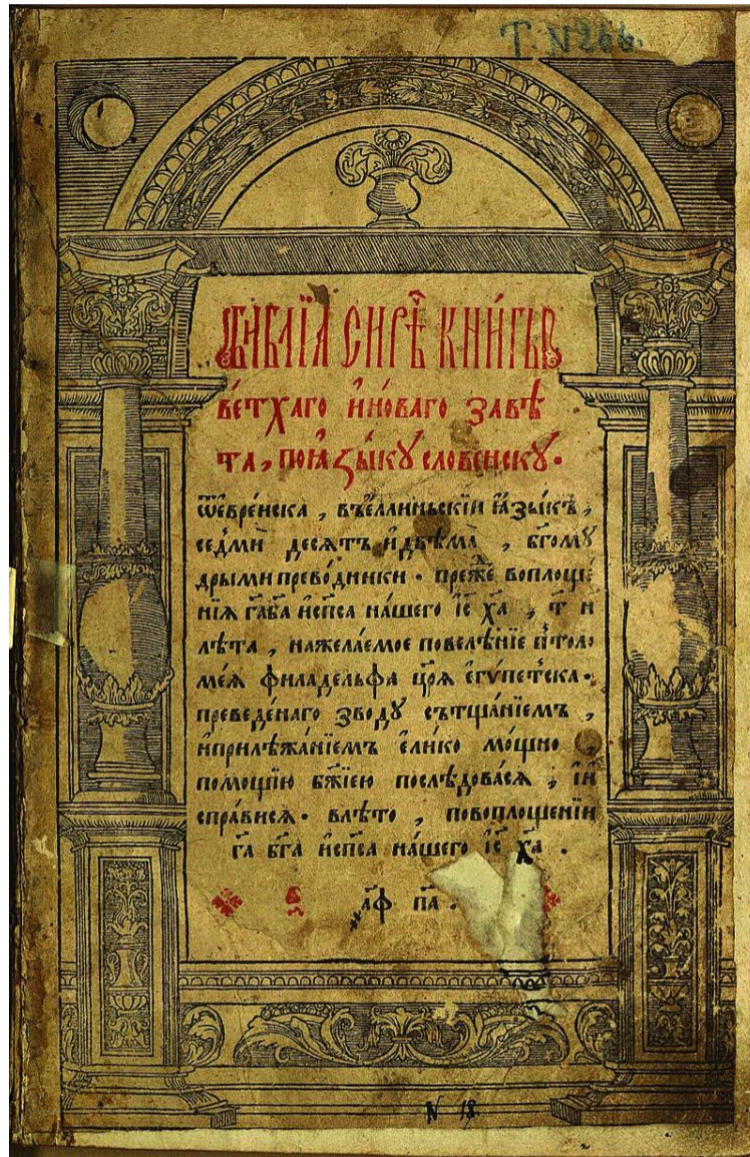 Т. N 266.
Библїѧ сирѣ́ч кни́гы
ве́тхаго и҆но́ваго завѣ́
та, поꙗ҆зы́кꙋ словенскꙋ.
ѿе҆вре́нска, въе҆ллиньскїи ꙗ҆зы́къ,
се́дмь десѧтъ и҆двѣма̀, бг҃омꙋ
дрыми прево́дники. пре́же воплоще́
нїѧ гд҃а бг҃а и҆сп҃са на́шего і҆с҃ х҃а, т҃ и
лѣ́та, нажела́емое повелѣ́нїе пто́ло
ме́ѧ филаде́льфа цр҃ѧ е҆гѵ́петска.
преведе́наго зводꙋ сътща́нїемъ,
и҆прилѣжа́нїемъ е҆ли́ко мо́щно,
помощїю бж҃їею послѣ́довасѧ, и҆и
спра́висѧ. влѣ́то, повоплощенїи
г҃а бг҃а и҆сп҃са на́шего і҆с҃ х҃а.
҂а҃ф п҃а.
N 18